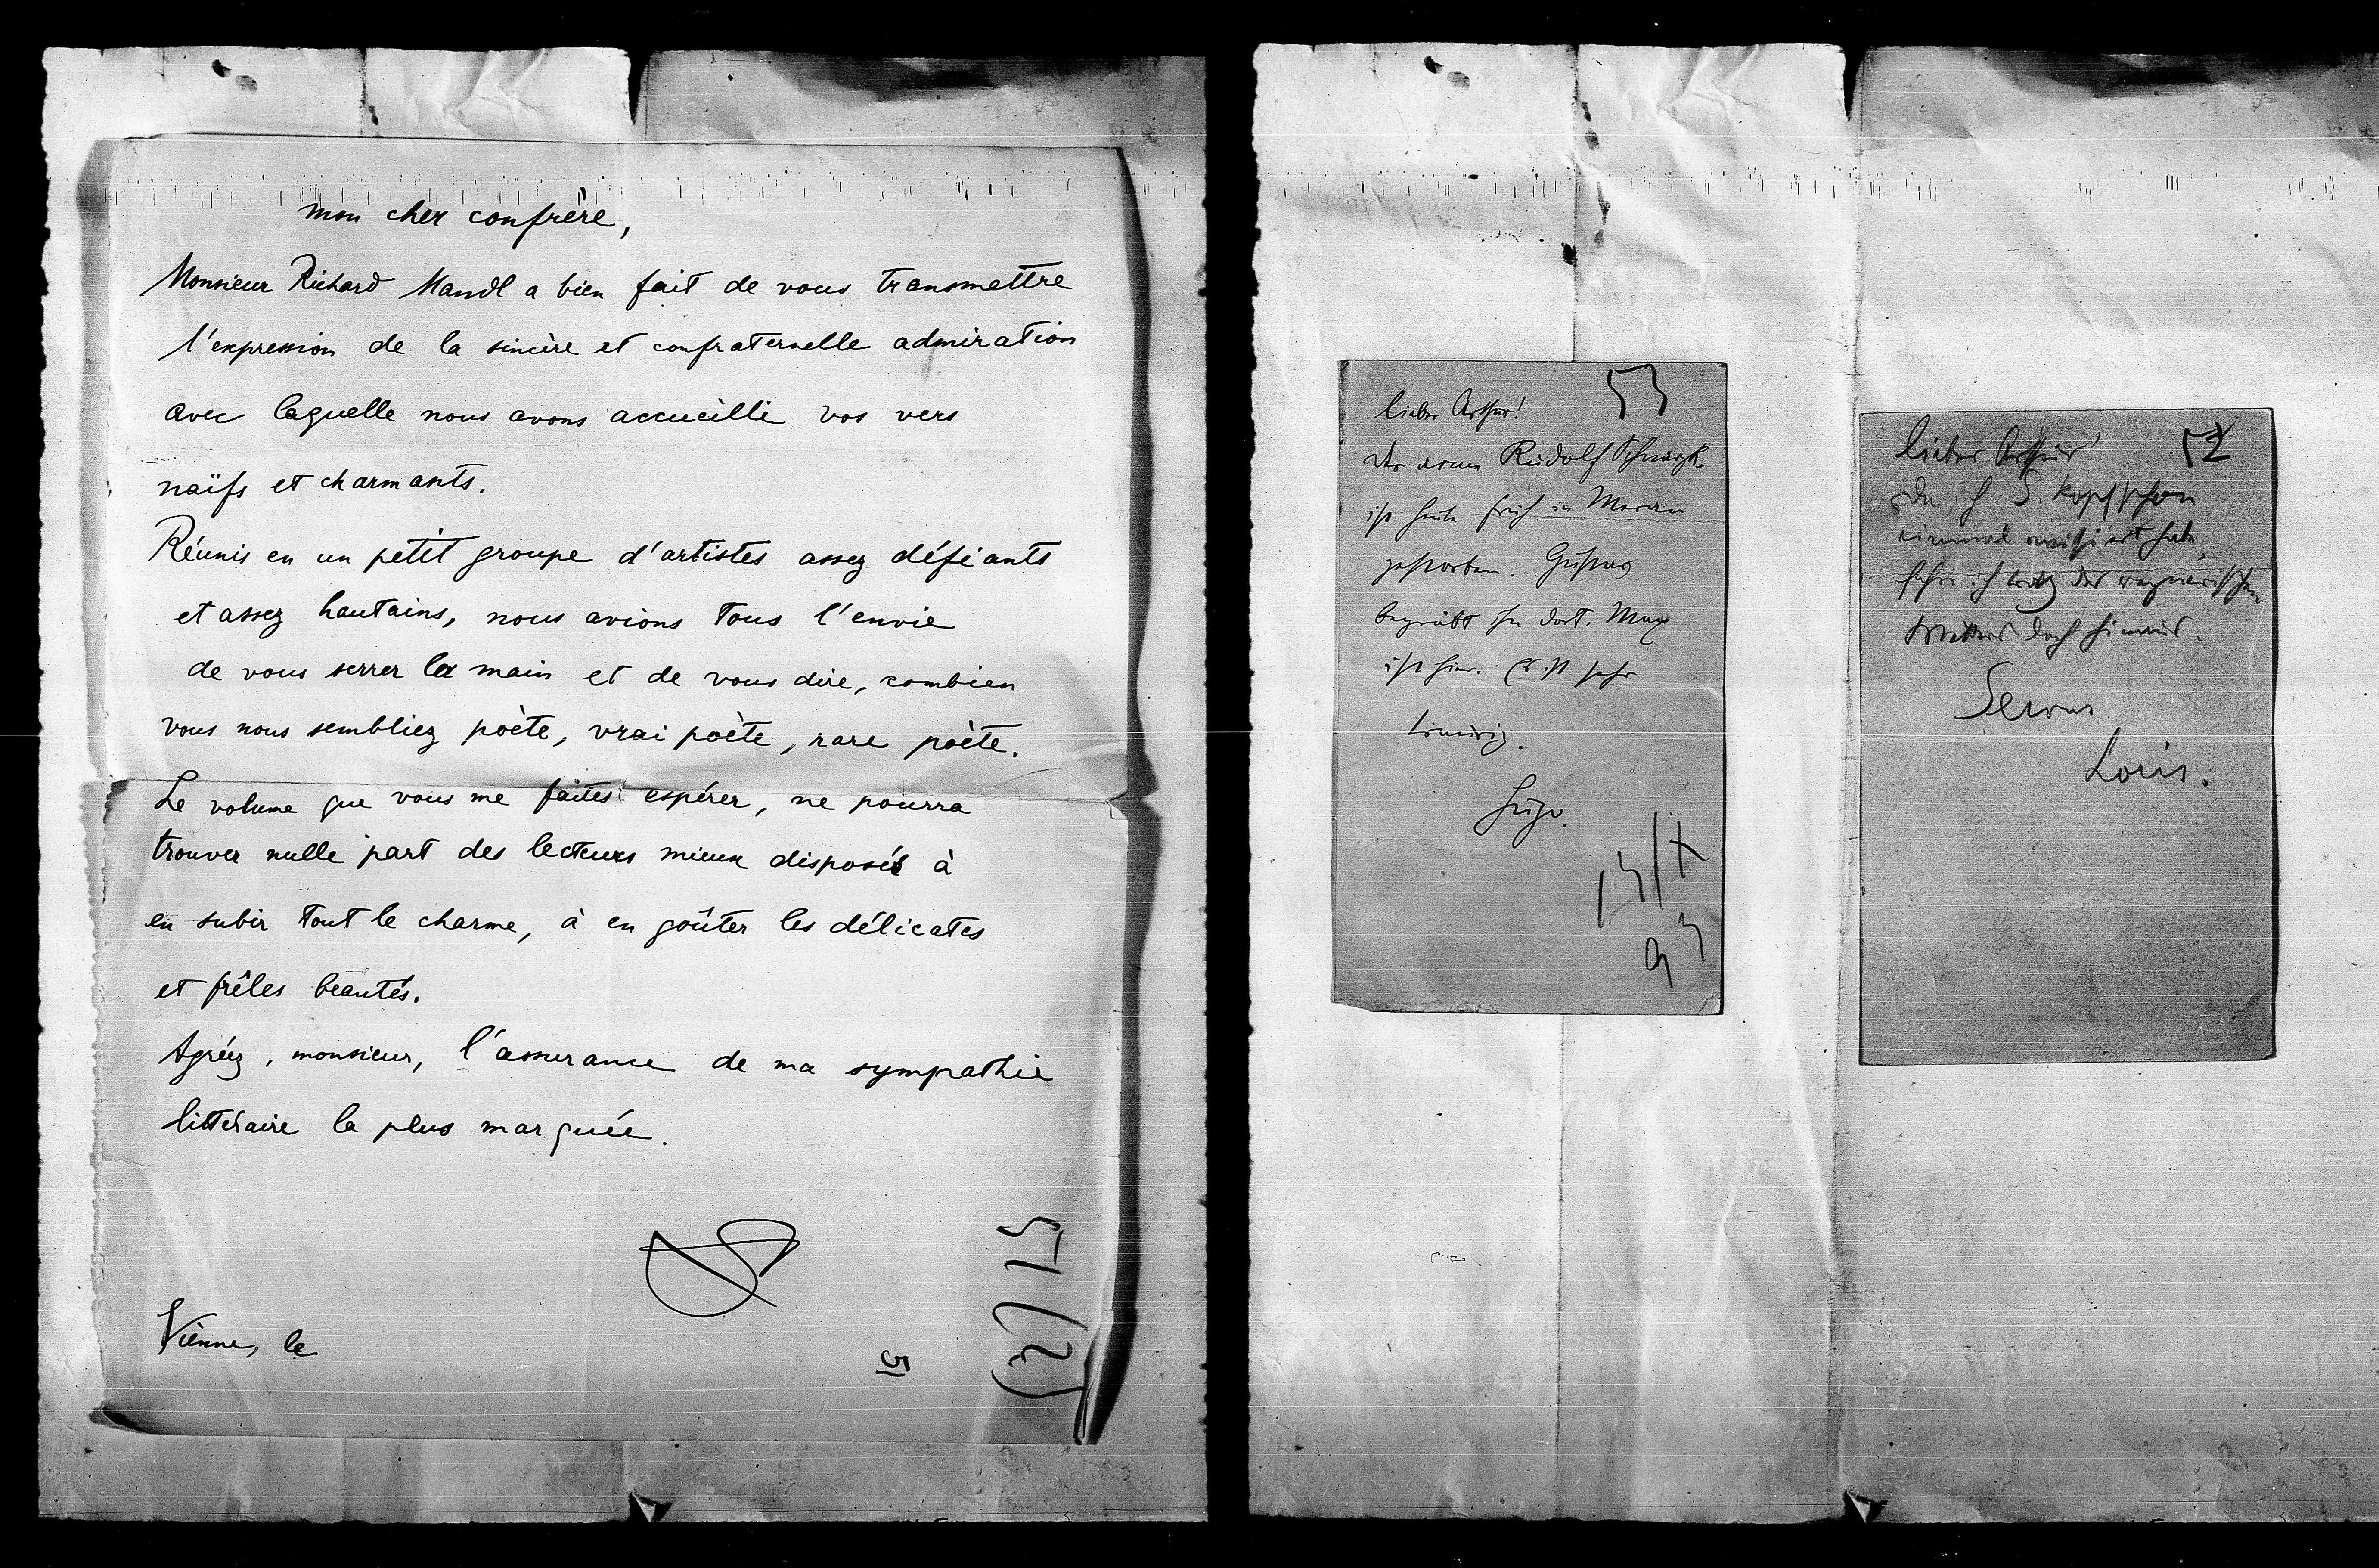 mon cher confrère,
Monsieur Richard Mandl a bien fait de vous transmettre
l'expression de la sincère et confraternelle admiration
avec laquelle nous avons accueilli vos vers
naïfs et charmants.
Réunis en un petit groupe d'artistes assez défiants
et assez hautains, nous avions tous l'envie
de vous serrer la main et de vous dire, combien
vous nous sembliez poète, vrai poète, rare poète.
Le volume que vous me faites espérer, ne pourra
trouver nulle part des lecteurs mieux disposés à
en subir tout le charme, à en goûter les délicates
et frêles beautés.
Agréez, monsieur, l'assurance de ma sympathie
littéraire la plus marquée.
Vienne, le
53
lieber Arthur!
der arme Rudolf
ist heute früh in Meran
gestorben. Gustav
begräbt ihn dort. Max
ist hier. Er ist sehr
traurig.
Hugo.
93
52
lieber Arthur
Da ich S. Kopf schon
einmal avisiert habe,
fahre ich trotz des wagnerischen
Wetters doch hinaus.
Servus
Loris.